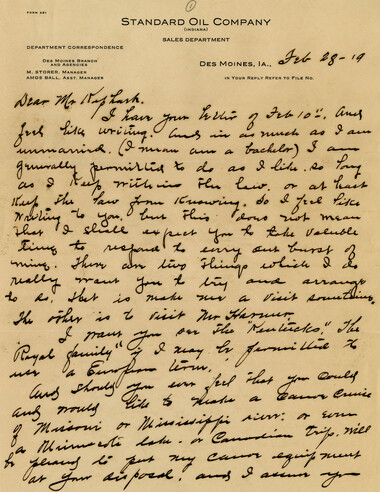 FORM 281
1
STANDARD OIL COMPANY
(INDIANA)
SALES DEPARTMENT
DEPARTMENT CORRESPONDENCE
DES MOINES BRANCH
AND AGENCIES
M. STORER, MANAGER
AMOS BALL, ASST. MANAGER
DES MOINES, IA., Feb 28-19
IN YOUR REPLY REFER TO FILE NO.
Dear Mr Kephart.
I have your letter of Feb 10th. And
feel like writing. And in as much as I am
unmarried. (I mean am a bachelor) I am
generally permitted to do as I like. so long
as I keep within the law. or at least
keep the law from knowing. So I feel like
writing to you, but this does not mean
that I shall expect you to take valuable
time to respond to every out burst of
mine. There are two things which I do
really want you to try and arrange
to do. That is make me a visit sometime.
The other is to visit Mr
I want you see the "Kentucks." The
"Royal family" if I may be permitted to
use a European term.
And should you ever feel that you could
and would like to make a Canoe Cruise
of Missouri or Mississippi river. or even
a Minnesota lake. or Canadian trip. Will
be pleased to put my canoe equipment
at your disposal. and I assure you